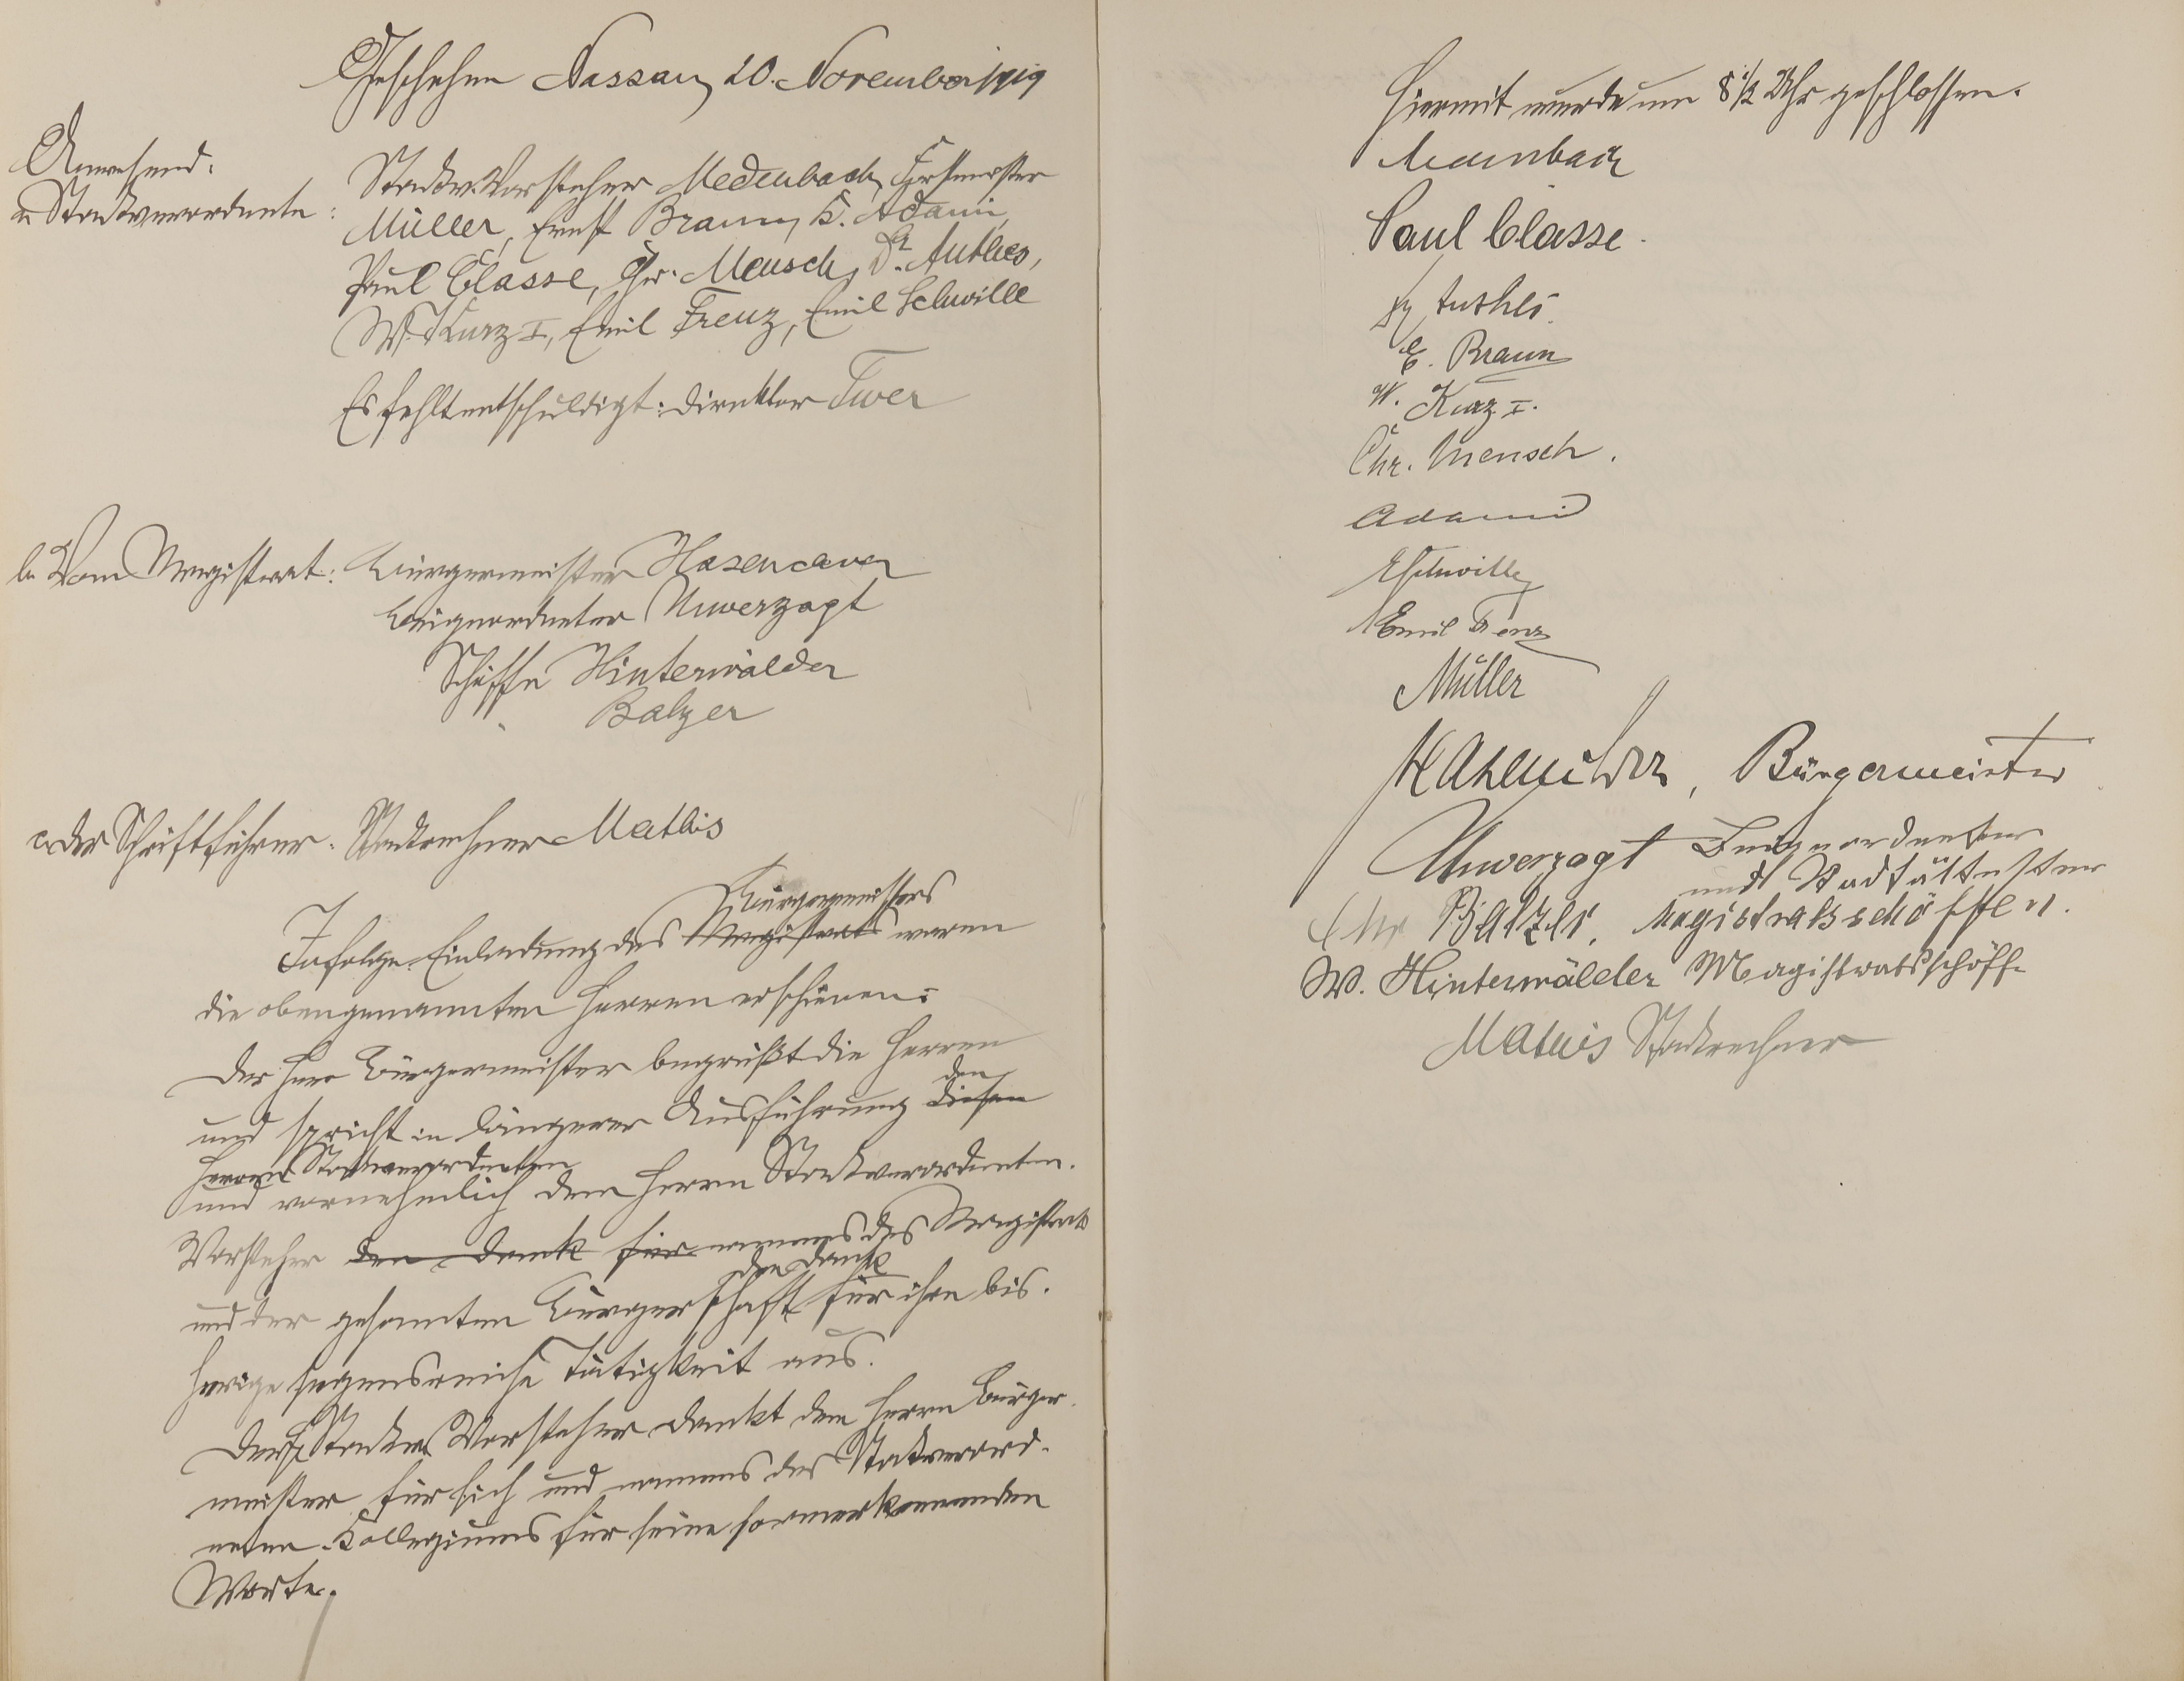 Geschehen Nassau, 20. November 1919
Anwesend:
a. Stadtverordnete:
Stadtv. Vorsteher Medenbach, Forstmeister
Müller, Ernst Braun, K. Adami,
Paul Classe, Chr. Mensch, Dr. Anthes,
W. Kurz I, Emil Frenz, Emil Schwille
Es fehlt entschuldigt: Direktor Twer
b. Vom Magistrat: Bürgermeister Hasenclever
Beigeordneter Unverzagt
Schöffe Hinterwälder
" Balzer
c. der Schriftführer: Stadtrechner Mathis
Bürgermeisters
Infolge Einladung des Magistrats waren
die obengenannten Herren erschienen:
Der Herr Bürgermeister begrüßt die Herren
den
und spricht in längerer Ausführung diesen
Herren Stadtverordneten
und vornehmlich dem Herrn Stadtverordneten-
Vorsteher den Dank für namens des Magistrats
den Dank
und der gesamten Bürgerschaft für ihre bis-
herige segensreiche Tätigkeit aus.
Der H. Stadtv. Vorsteher dankt dem Herrn Bürger-
meister für sich und namens des Stadtverord-
neten-Kollegiums für seine
Worte.
Hiermit wurde um 8 1/2 Uhr geschlossen.
Medenbach
Paul Classe.
Dr Anthes.
E. Braun
W. Kurz I.
Chr. Mensch.
Adami
E Schwille
Emil Frenz
Müller
Hasenclever, Bürgermeister
Unverzagt Beigeordneter
und Stadtältester
Chr Balzer, Magistratsschöffen.
W. Hinterwälder Magistratsschöffe
Mathis Stadtrechner